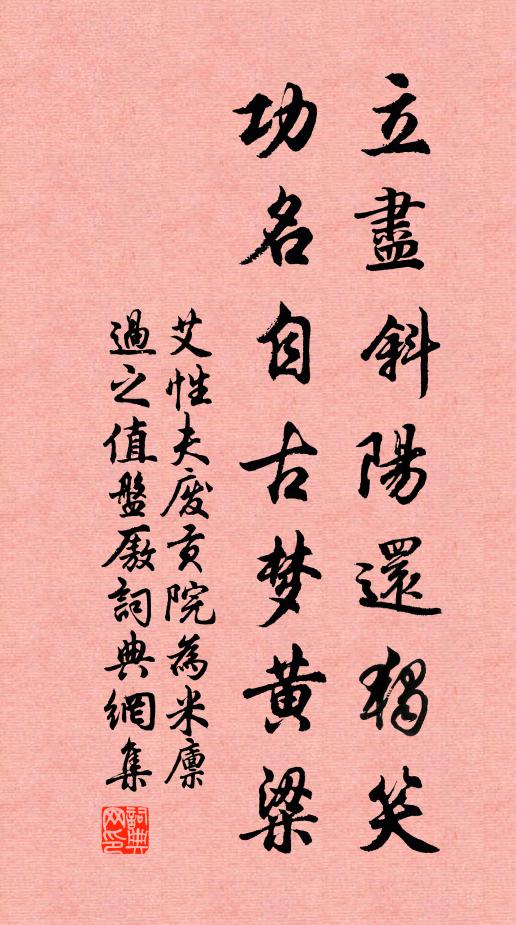 立盡斜陽還獨笑
功名自古梦黄粱
艾性夫廢貢院為米廩
過之值盤厫詞典網集
詞典
网印